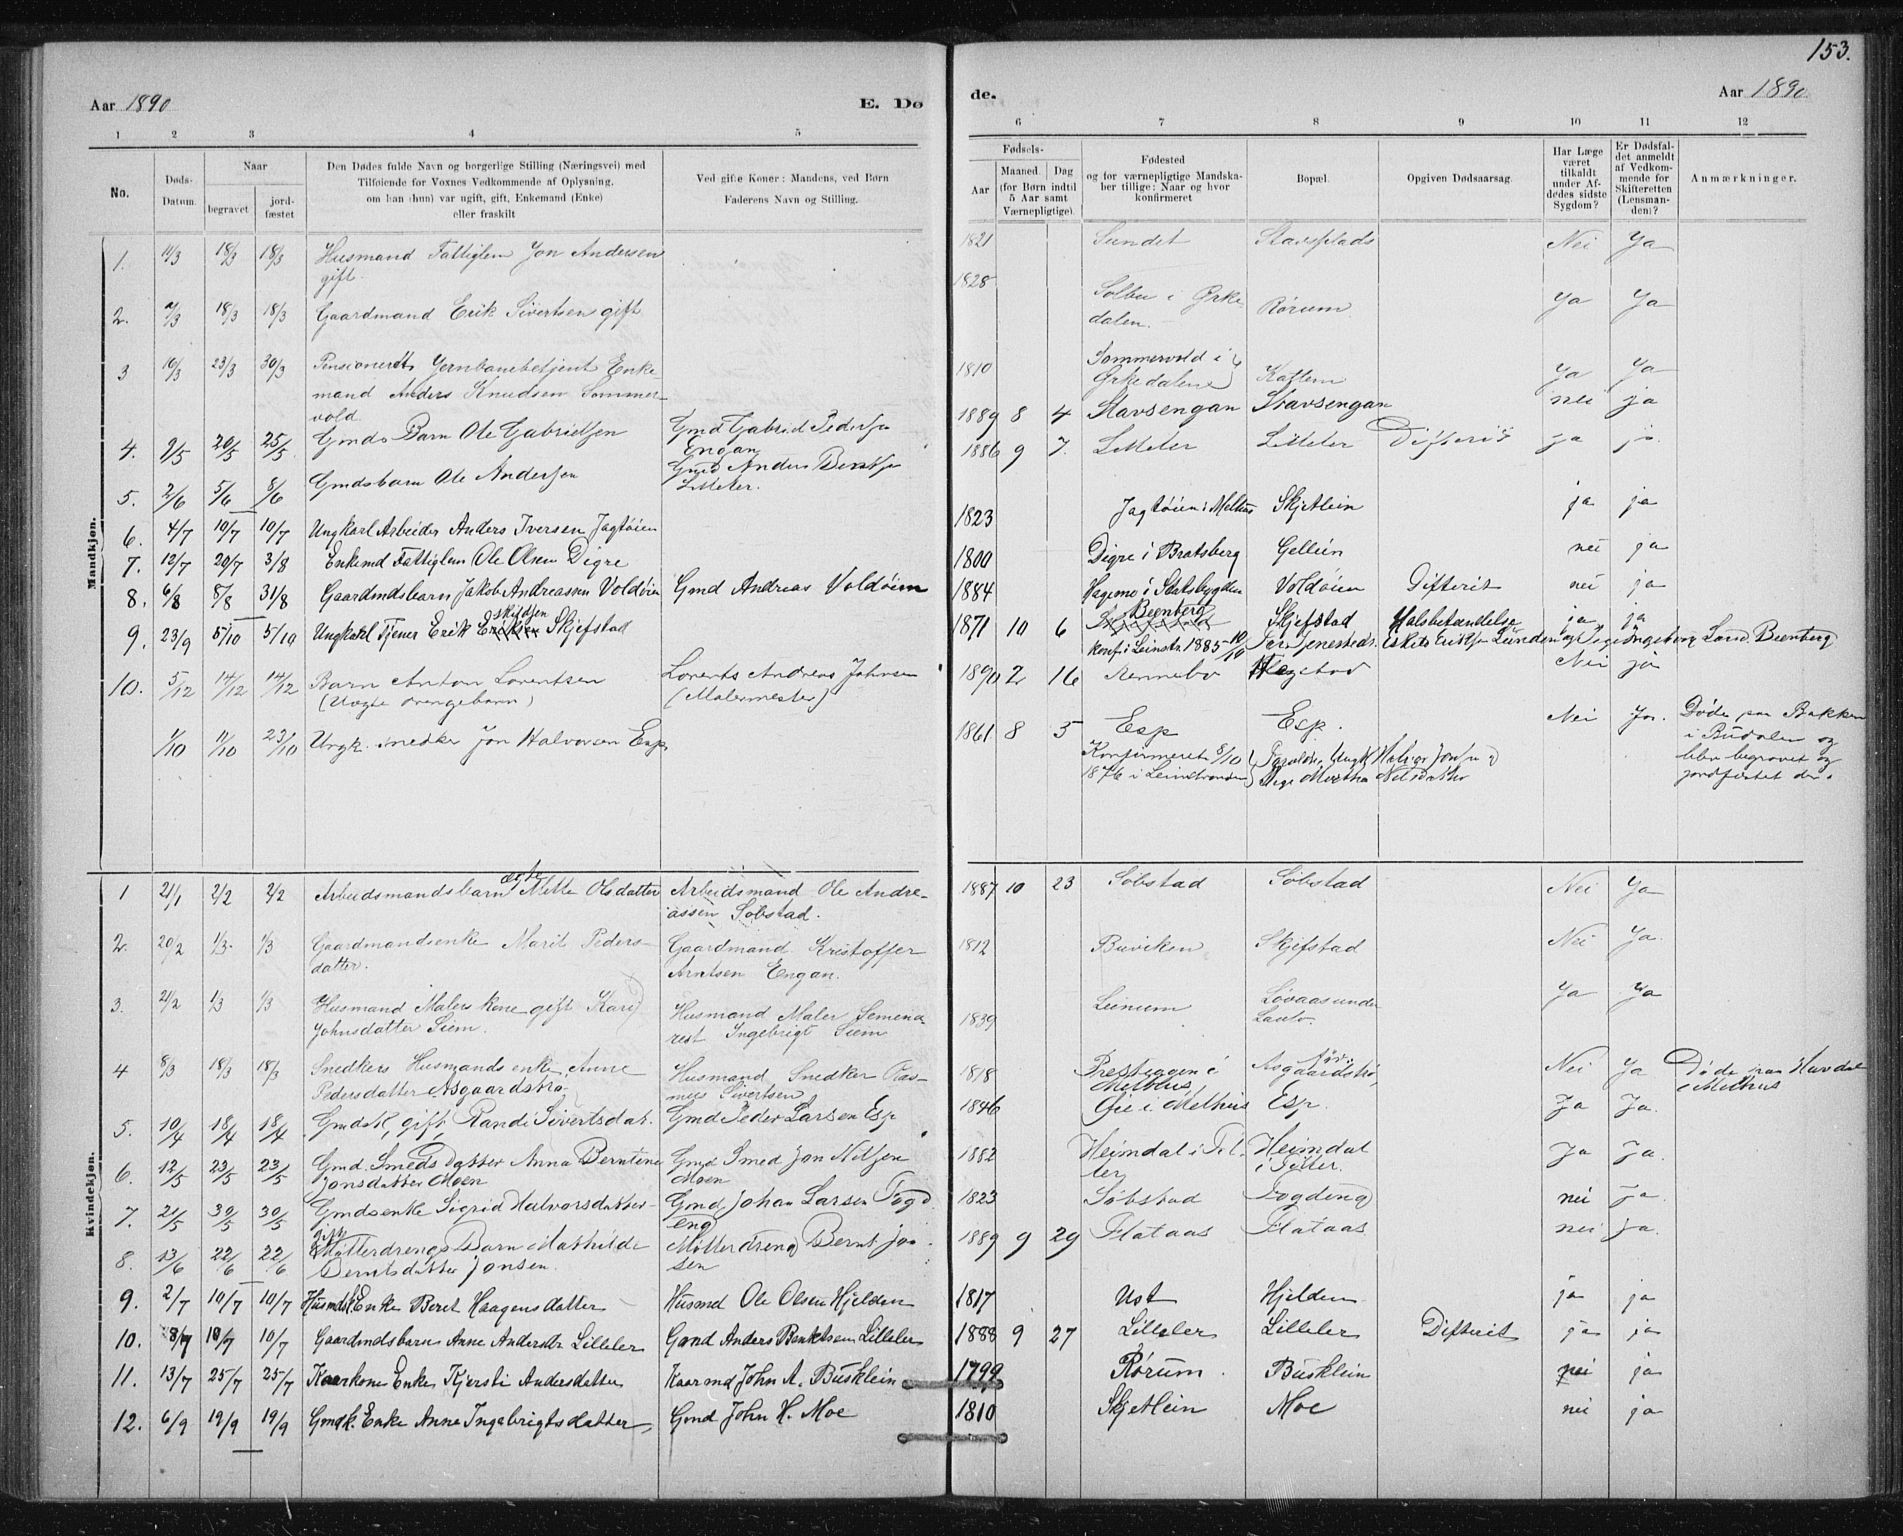 153.
Aar 1890
E. Dø
de.
Aar 1890
1 2 3 4 5
6 7 8 9 10 11 12
No.
Døds-
Datum.
Naar
begravet
jord-
fæstet
Den Dødes fulde Navn og borgerlige Stilling (Næringsvei) med
Tilføiende for Voxnes Vedkommende af Oplysning,
om han (hun) var ugift, gift, Enkemand (Enke)
eller fraskilt
Ved gifte Koner: Mandens, ved Børn
Faderens Navn og Stilling.
Fødsels-
Aar
Maaned. Dag
(for Børn indtil
5 Aar samt
Værnepligtige).
Fødested
og for værnepligtige Mandska-
ber tillige: Naar og hvor
konfirmeret
Bopæl.
Opgiven Dødsaarsag.
Har Læge
været
tilkaldt
under Af-
dødes sidste
Sygdom?
Er Dødsfal-
det anmeldt
af Vedkom-
mende for
Skifteretten
(Lensman-
den)?
Anmærkninger.
Mandkjøn.
1. 11/3 18/3 18/3 Husmand Fattiglem Jon Andersen 1821 Sundet Stavsplads Nei Ja
gift.
2. 7/3 18/3 18/3 Gaardmand Erik Sivertsen gift 1828 Solbu i Orke Rørum Ja Ja
dalen.
3 10/3 23/3 30/3 Pensioneret Jernbanebetjent Enke- 1810 Sommervold i Kattem Ja Ja
mand Anders Knudsen Sommer- Orkedalen
vold
4. 9/5 20/5 25/5 Gmds Barn Ole Gabrielsen Gmd Gabriel Pedersen 1889 8 4 Stavsengan Stavsengan nei ja
Engan
5. 2/6 5/6 8/6 Gmdsbarn Ole Andersen Gmd Anders Bentsen 1886 9 7. Lilleler Lilleler Difterit ja ja
Lilleler.
6. 4/7 10/7 10/7 Ungkarl Arbeider Anders Iversen Jagtøien 1823 Jagtøien i Melhus Skjetlein ja ja
7. 12/7 20/7 3/8 Enkemd Fattiglem Ole Olsen Digre 1800 Digre i Bratsberg Gellein nei ja
8. 6/8 8/8 31/8 Gaardmdsbarn Jakob Andreassen Voldøien Gmd Andreas Voldøien 1884 Hagemo i Statsbygden Voldøien Difterit nei ja
9. 23/9 5/10 5/10 Ungkarl Tjener Erik Eskildsen Skjefstad 1871 10 6 Bjenberg Skjefstad Halsbetændelse ja ja
konf i Leinstr. 1885 Eskild Eriksen Lunden og Pige Ingeborg Bjenberg
10. 5/12 14/12 14/12 Barn Anton Lorentsen Lorents Andreas Johnsen 1890 2 16 Rennebo Nei ja
(Uægte drengebarn) (Malermester)
1/10 11/10 23/10 Ungk. snedker Jon Halvorsen Esp 1861 8 5 Esp Esp. Nei Ja. Døde paa Bakken
Konfirmeret 8/10 Ungk Halvor Jonsen og i Budalen og
1876 i Leinstranden Pige Martha Nilsdatter blev begravet og
jordfæstet der.
Kvindekjøn.
1 21/1 2/2 2/2 Arbeidsmandsbarn ægte Mette Olsdatter Arbeidsmand Ole Andre- 1887 10 23 Søbstad Søbstad Nei Ja
assen Søbstad.
2. 20/2 1/3 1/3 Gaardmandsenke Marit Peders- Gaardmand Kristoffer 1812 Buviken Skjefstad Nei Ja.
datter. Arntsen Engan.
3. 21/2 1/3 1/3 Husmand Malers kone gift Kari Husmand Maler Semena 1839 Leinum Løvaas under Ja Ja
Johnsdatter Siem. rest Ingebrigt Siem
4 8/3 18/3 18/3 Snedkers Husmands enke Anne Husmand Snedker Ras- 1818 Presteggen i Asgaardstrø Nei Ja Døde paa
Pedersdatter Asgaardstrø mus Sivertsen Melhus i Melhus
5. 10/4 18/4 18/4 Gmdsk, gift, Randi Sivertsdat. Gmd Peder Larsen Esp 1846 Øie i Melhus Esp. Ja Ja.
6. 12/5 23/5 23/5 Gmd. Smeds Datter Anna Berntine Gmd Smed Jon Nilsen 1882 Heimdal i Til- Heimdal Ja Ja.
Jonsdatter Moen Moen ler i Tiller.
7. 21/5 30/5 30/5 Gmdsenke Sigrid Halvorsdatter Gmd Johan Larsen Fogd 1823 Søbstad Fogdeng nei ja.
eng
8. 13/6 22/6 22/6 Møllerdrengs Barn Mathilde Møllerdreng Bernt Jon 1889 9 29 Flataas Flataas nei ja.
Berntsdatter Jonsen. sen
9. 2/7 10/7 10/7 Husmds Enke Beret Haagensdatter Husmd Ole Olsen Hjelden 1817 Ust Hjelden ja ja
10. 8/7 10/7 10/7 Gaardmdsbarn Anne Andersdtr Lilleler Gmd Anders Bentsen Lilleler 1888 9 27 Lilleler Lilleler Difterit ja ja
11. 13/7 25/7 25/7 Kaarkone Enke Kjersti Andersdatter Kaarmd John A. Busklein 1799 Rørum. Busklein nei ja
12. 6/9 19/9 19/9 Gmdk. Enke Anne Ingebrigtsdatter, Gmd John H. Moe 1810 Skjetlein Moe nei ja